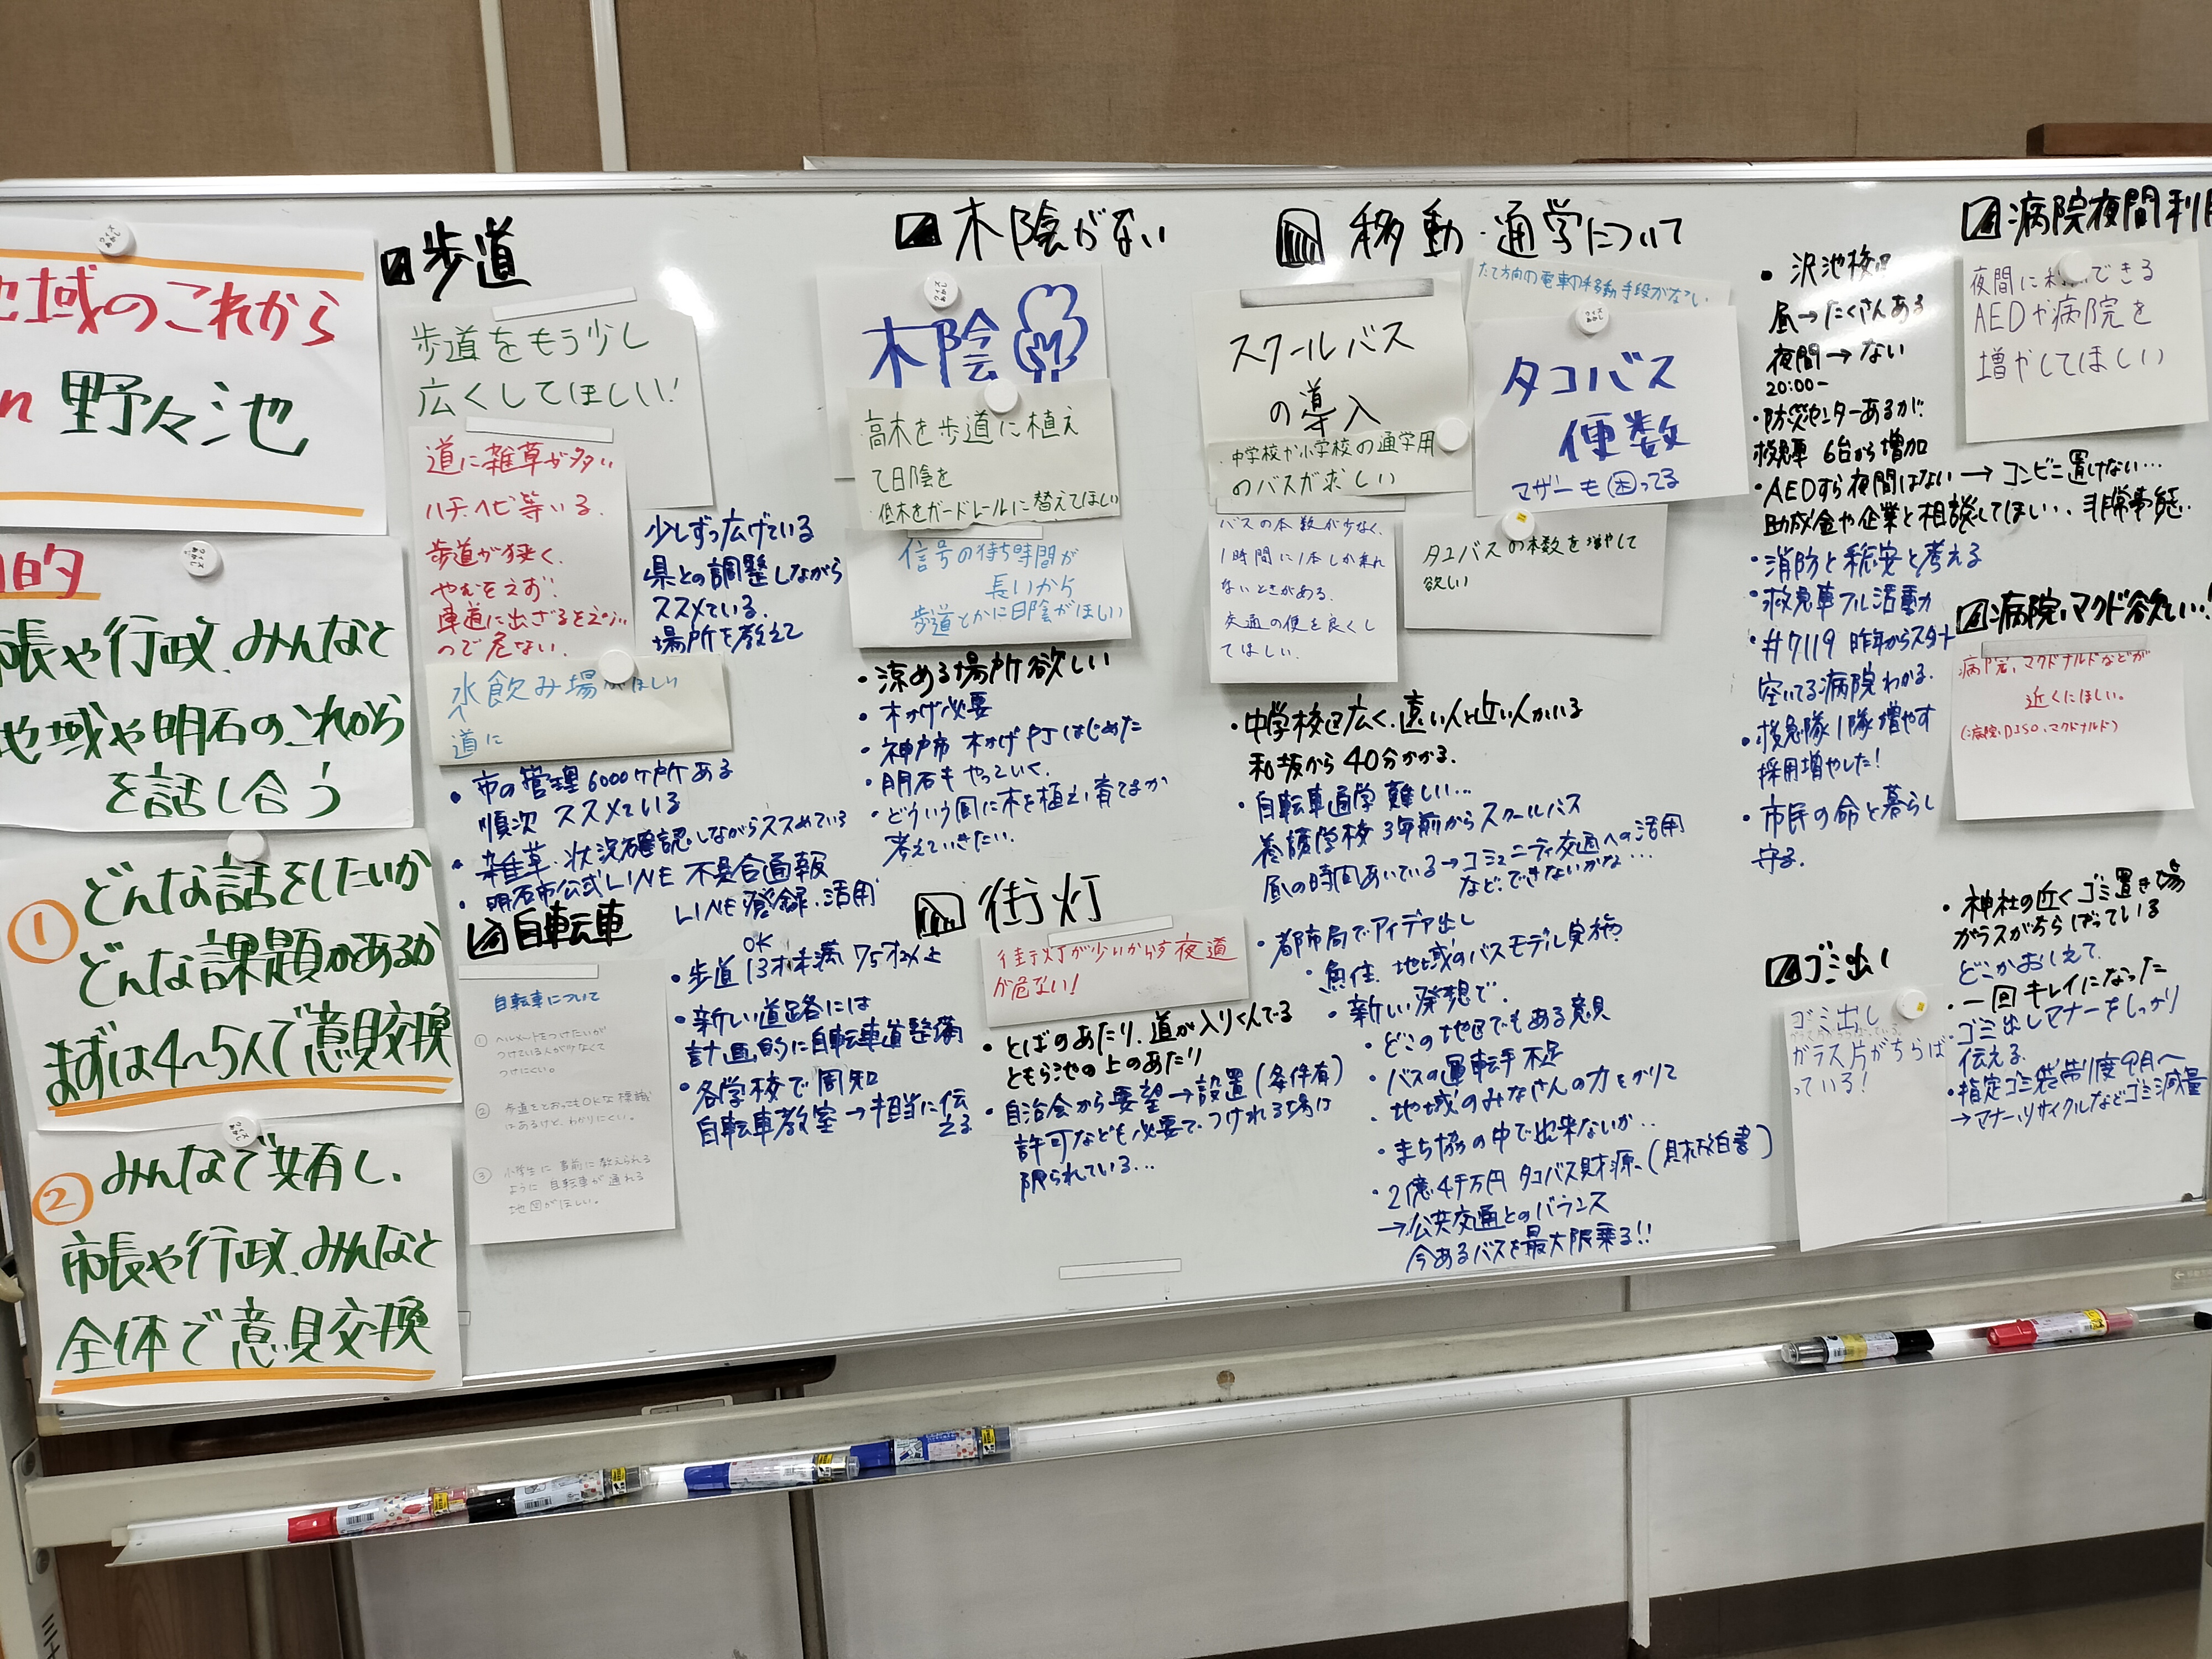 地域のこれから
in 野々池
目的
市長や行政、みんなと
地域や明石のこれから
を話し合う
① どんな話をしたいか
どんな課題があるか
まずは4~5人で意見交換
② みんなで共有し、
市長や行政、みんなと
全体で意見交換
歩道
歩道をもう少し
広くしてほしい!
道に雑草が多い
ハチ、ヘビ等いる。
歩道が狭く、
やむをえず、
車道に出ざるをえない
ので危ない。
少しずつ広げている
県との調整しながら
ススメている。
場所を教えて
水飲み場がほしい
道に
・市の管理6000ヶ所ある
順次 ススメている
・雑草・状況確認しながらススめている
・明石市公式LINE 不具合通報
LINE登録・活用
自転車
自転車について
① ヘルメットをつけたいが
つけている人が少なくて
つけにくい。
② 歩道をとおってもOKな標識
はあるけど、わかりにくい。
③ 小学生に事前に教えられる
ように自転車が通れる
地図がほしい。
OK
・歩道 13才未満 75才以上
・新しい道路には
計画的に自転車道整備
・各学校で周知
自転車教室→担当に伝
える
木陰がない
木陰
高木を歩道に植え
て日陰を
・低木をガードレールに替えてほしい
信号の待ち時間が
長いから
歩道とかに日陰がほしい
・涼める場所欲しい
・木かげ必要
・神戸市 木かげPJはじめた
・明石もやっていく。
・どういう風に木を植え、育てるか
考えていきたい。
街灯
街灯が少ないからす夜道
が危ない!
・とばのあたり、道が入りくんでる
ともら池の上のあたり
・自治会から要望→設置(条件有)
許可なども必要で、つけれる場は
限られている…
移動・通学について
スクールバス
の導入
・中学校か小学校の通学用
のバスが欲しい
バスの本数が少なく、
1時間に1本しか来れ
ないときがある。
交通の便を良くし
てほしい。
たて方向の電車の移動手段がない
タコバス
便数
マザーも困ってる
タコバスの本数を増やして
欲しい
・中学校区広く、遠い人と近い人がいる
和坂から40分かかる。
・自転車通学 難しい…
養護学校 3年前からスクールバス
昼の時間あいている→コミュニティ交通への活用
など、できないかな…
・都市局でアイデア出し
・魚住、地域のバスモデル実施
・新しい発想で、
・どこの地区でもある意見
・バスの運転手不足
・地域のみなさんの力をかりて
・まち協の中で出来ないか…
・2億4千万円 タコバス財源、(財政白書)
→公共交通とのバランス
今あるバスを最大限乗る!!
病院夜間利用
夜間に利用できる
AEDや病院を
増やしてほしい
・沢池校区
昼→たくさんある
夜間→ない
20:00~
・防災センターあるが、
救急車 6台から増加
・AEDすら夜間はない→コンビニ置けない…
助成金や企業と相談してほしい、、非常事態、
・消防と
考える
・救急車フル活動
・#7119 昨年からスタート
空いてる病院わかる。
・救急隊1隊増やす
採用増やした!
・市民の命と暮らし
守る。
病院、マクド欲しい!
病院、マクドナルドなどが
近くにほしい。
(病院、DISO、マクドナルド)
ゴミ出し
ゴミ出し
ガラス片がちらば
っている!
・神社の近くゴミ置き場
ガラスがちらばっている
どこかおしえて、
・一回キレイになった
・ゴミ出しマナーをしっかり
伝える
・指定ゴミ袋制度4月へ
→マナー、リサイクルなどゴミ減量